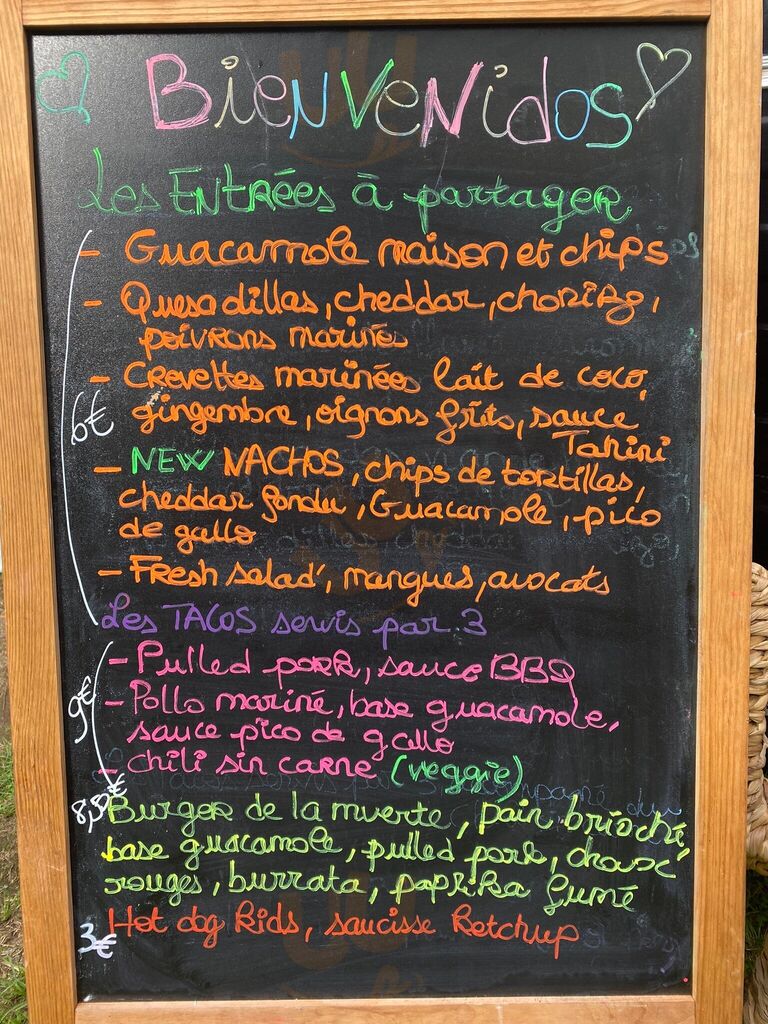 BIENVENidos
Les ENTRÉES à partager
- Guacamole maison et chips
- Quesadillas, cheddar, chorizo,
poivrons marinés
- Crevettes marinées lait de coco,
gingembre, oignons frits, sauce
Tahini
6€
- NEW NACHOS, chips de tortillas,
cheddar fondu, Guacamole, pico
de gallo
- Fresh salad', mangues, avocats
Les TACOS servis par 3
- Pulled pork, sauce BBQ
9€
- Pollo mariné, base guacamole,
sauce pico de gallo
- chili sin carne (veggie)
8,50€
Burger de la muerte, pain brioché
base guacamole, pulled pork, choux
rouges, burrata, paprika fumé
3€
Hot dog kids, saucisse ketchup